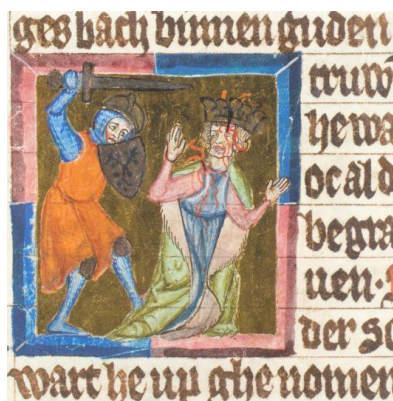 ges bach binnen guden
truw
he wa
ocal d
begra
uen.
der sc
wart he up ghe nomen